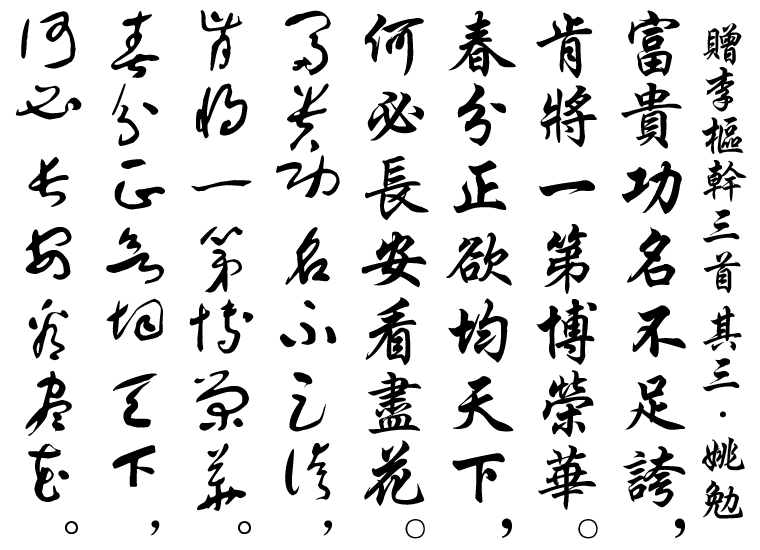 贈李樞幹三首其三．姚勉
富貴功名不足誇，
肯將一第博榮華。
春分正欲均天下，
何必長安看盡花。
富貴功名不足誇，
肯將一第博榮華。
春分正欲均天下，
何必長安看盡花。